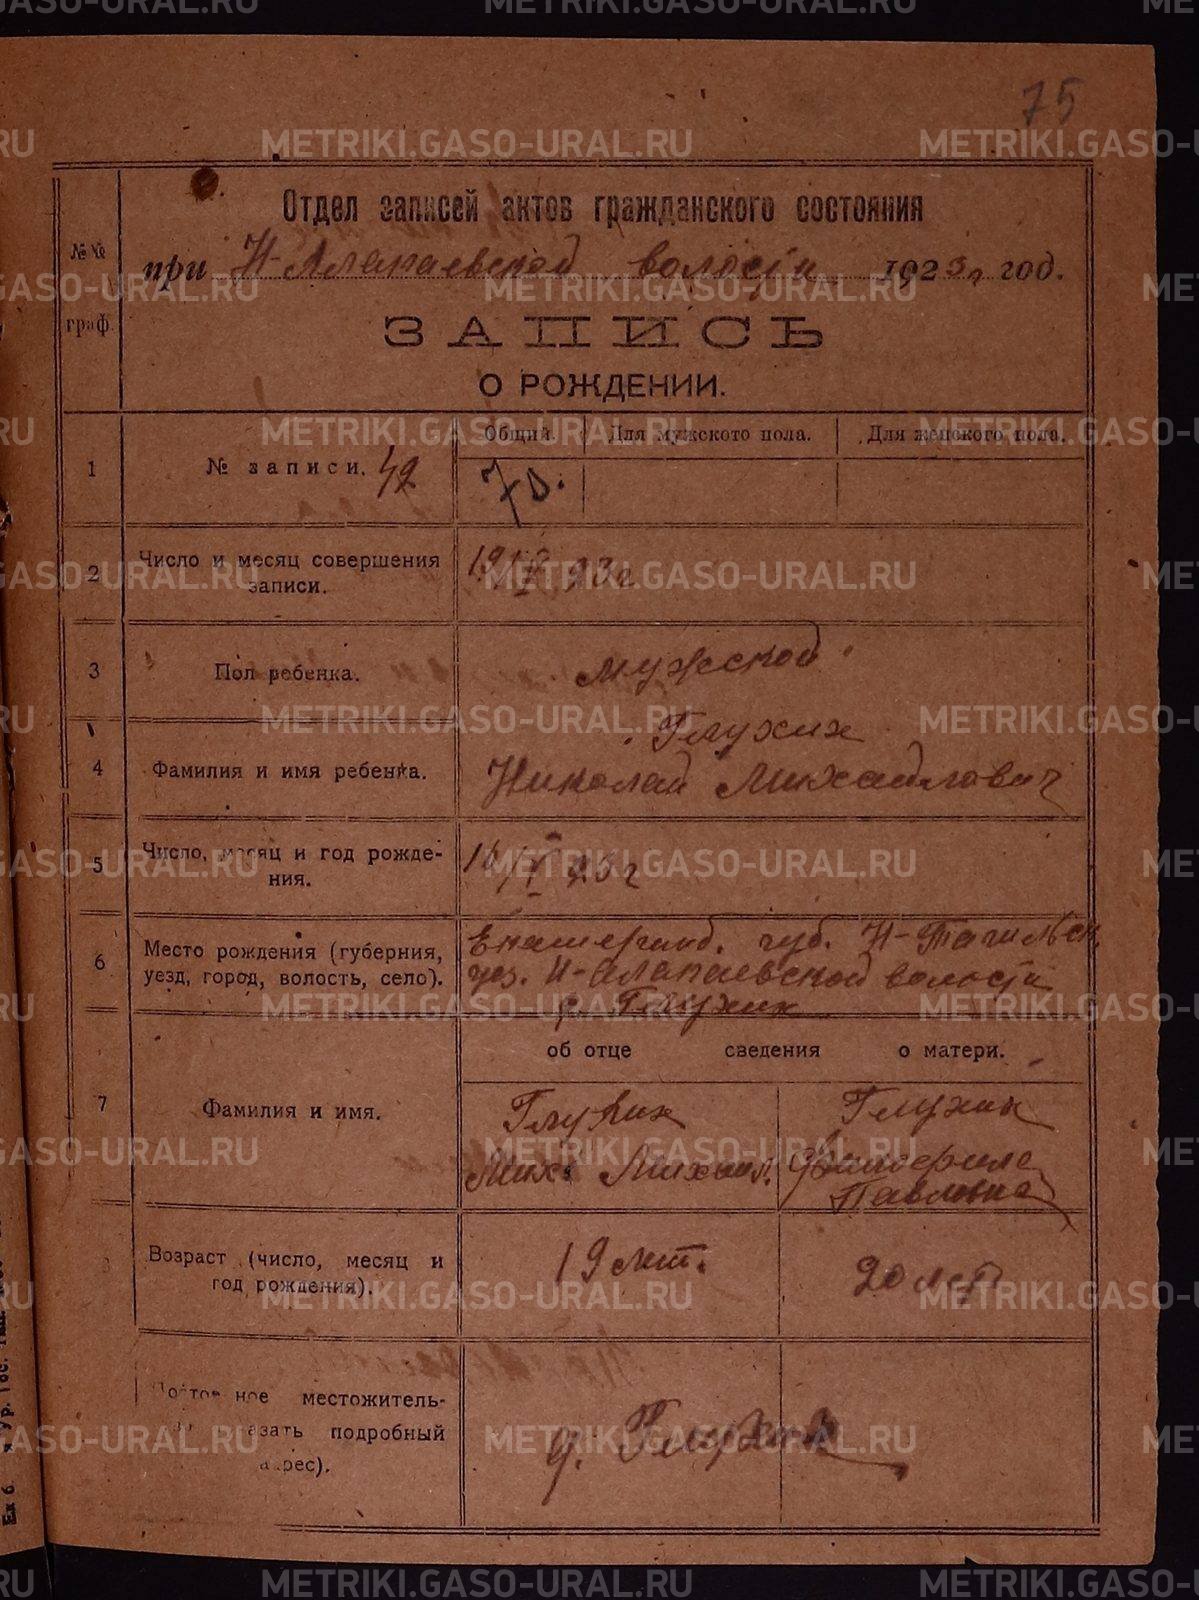 75
Отдел записей актов гражданского состояния
№№ граф.
при Н-Алапаевской волости 1923 г. год.
ЗАПИСЬ
О РОЖДЕНИИ.
1
№ записи. 42
Общий. Для мужского пола. Для женского пола.
2
Число и месяц совершения
записи.
19/V 23 г
3
Пол ребенка.
Мужской
4
Фамилия и имя ребенка.
Глухих
Николай Михайлович
5
Число, месяц и год рожде-
ния.
16/V 23 г
6
Место рождения (губерния,
уезд, город, волость, село).
Екатеринб. губ. Н-Тагильск.
уез. Н-Алапаевской волости
д. Глухих
об отце сведения о матери.
7
Фамилия и имя.
Глухих
Мих. Михаил.
Глухих
Павловна
8
Возраст (число, месяц и
год рождения).
19 лет.
20 лет
местожитель-
подробный
д. Глухих
METRIKI.GASO-URAL.RU